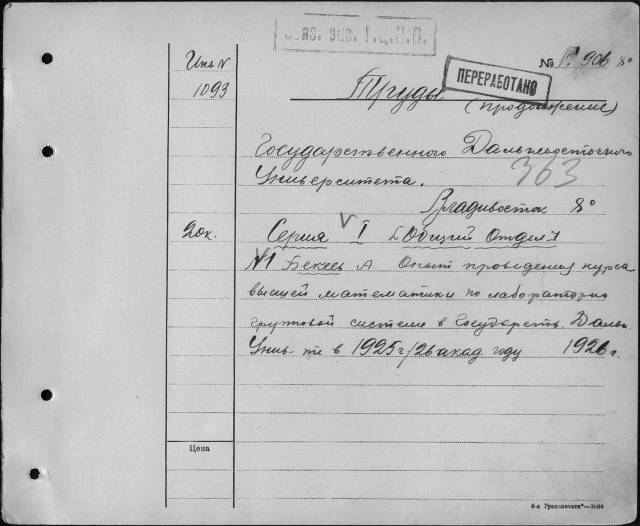 ОБЯЗ. ЭКЗ. Г.Ц.К.П.
Инв N
№ 906 8°
1093
ПЕРЕРАБОТАНО
Труды (продолжение)
Государственного Дальневосточного
Университета.
363
Владивосток 8°
20к.
Серия I [Общий Отдел]
N1 Бекеев А. Опыт проведения курса
высшей математики по лабораторно
групповой системе в Государств. Дальн.
Унив-те в 1925г/26 акад. году 1926 г.
Цена